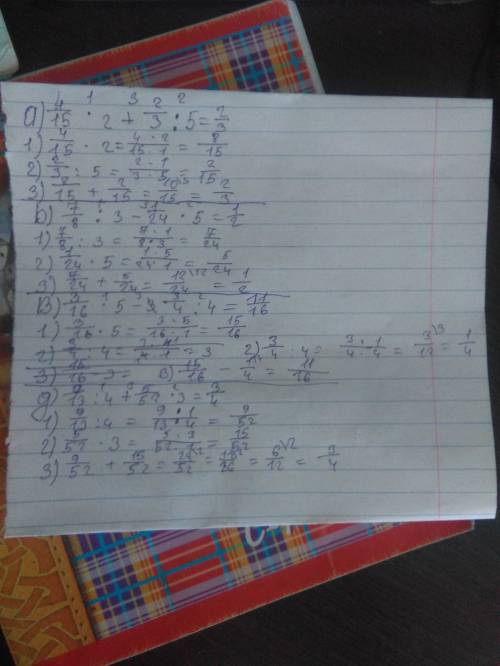 а) 4/15 · 2 + 2/3 : 5 = 2/3
1) 4/15 · 2 = 4 · 2/15 · 1 = 8/15
2) 2/3 : 5 = 2 · 1/3 · 5 = 2/15
3) 8/15 + 2/15 = 10/15 = 2/3
б) 7/8 : 3 - 1/24 · 5 = 1/2
1) 7/8 : 3 = 7 · 1/8 · 3 = 7/24
2) 1/24 · 5 = 1 · 5/24 · 1 = 5/24
3) 7/24 + 5/24 = 12/24 = 1/2
в) 3/16 · 5 - 3/4 : 4 = 11/16
1) 3/16 · 5 = 3 · 5/16 · 1 = 15/16
2) 3/4 : 4 = 3 · 1/4 · 4 = 3/12 = 1/4
3) 15/16 - 1/4 = 11/16
д) 9/13 : 4 + 5/52 · 3 = 3/4
1) 9/13 : 4 = 9 · 1/13 · 4 = 9/52
2) 5/52 · 3 = 5 · 3/52 · 1 = 15/52
3) 9/52 + 15/52 = 24/52 = 6/12 = 3/4